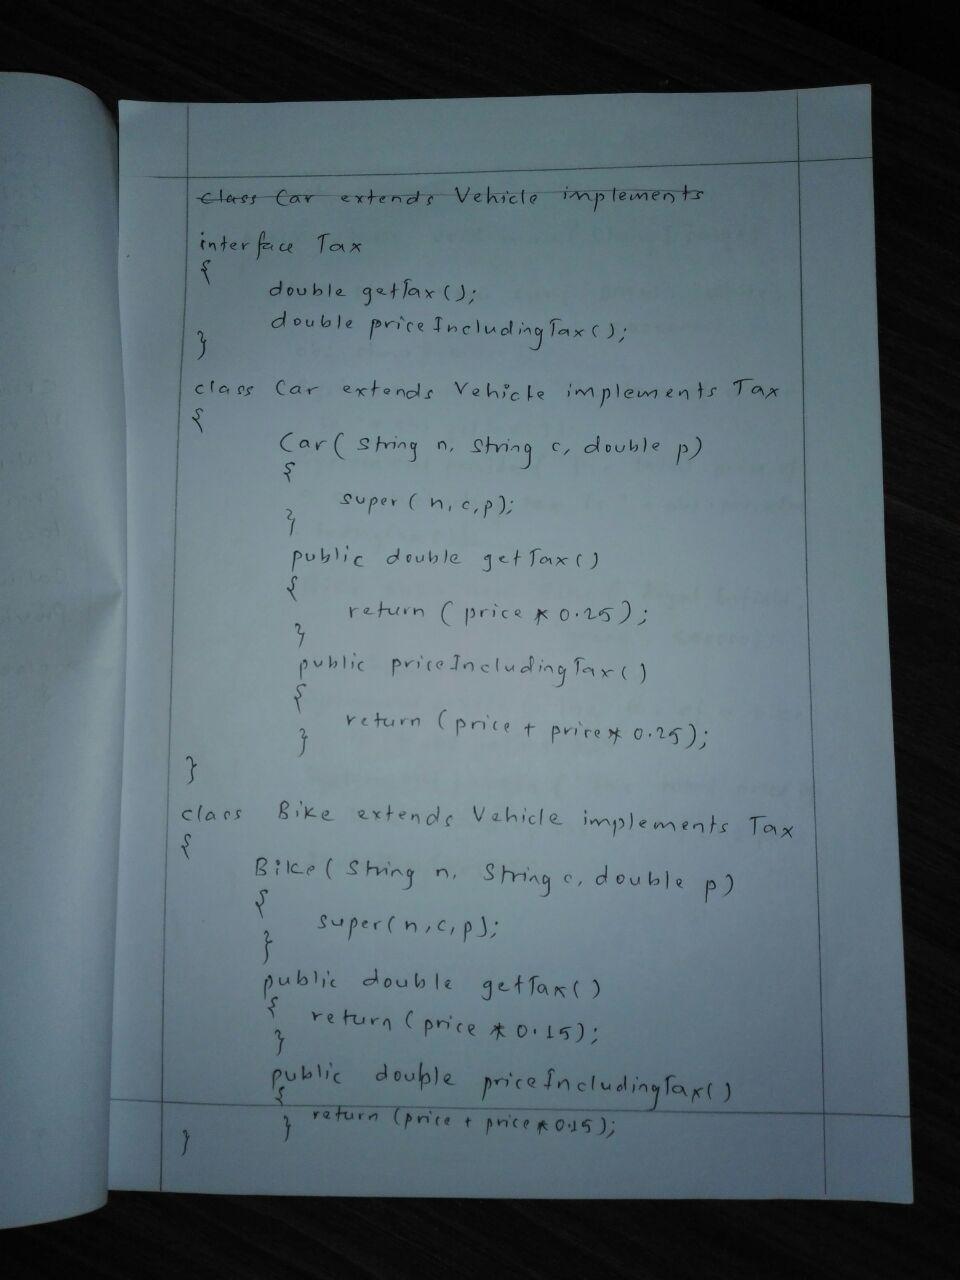 class Car extends Vehicle implements
interface Tax
{
double getTax();
double priceIncludingTax();
}
class Car extends Vehicle implements Tax
{
Car( String n, String c, double p)
{
super(n,c,p);
}
public double getTax()
{
return (price * 0.25);
}
public priceIncludingTax()
{
return (price + price * 0.25);
}
}
class Bike extends Vehicle implements Tax
{
Bike( String n, String c, double p)
{
super(n,c,p);
}
public double getTax()
{
return (price * 0.15);
}
public double priceIncludingTax()
{
return (price + price * 0.15);
}
}